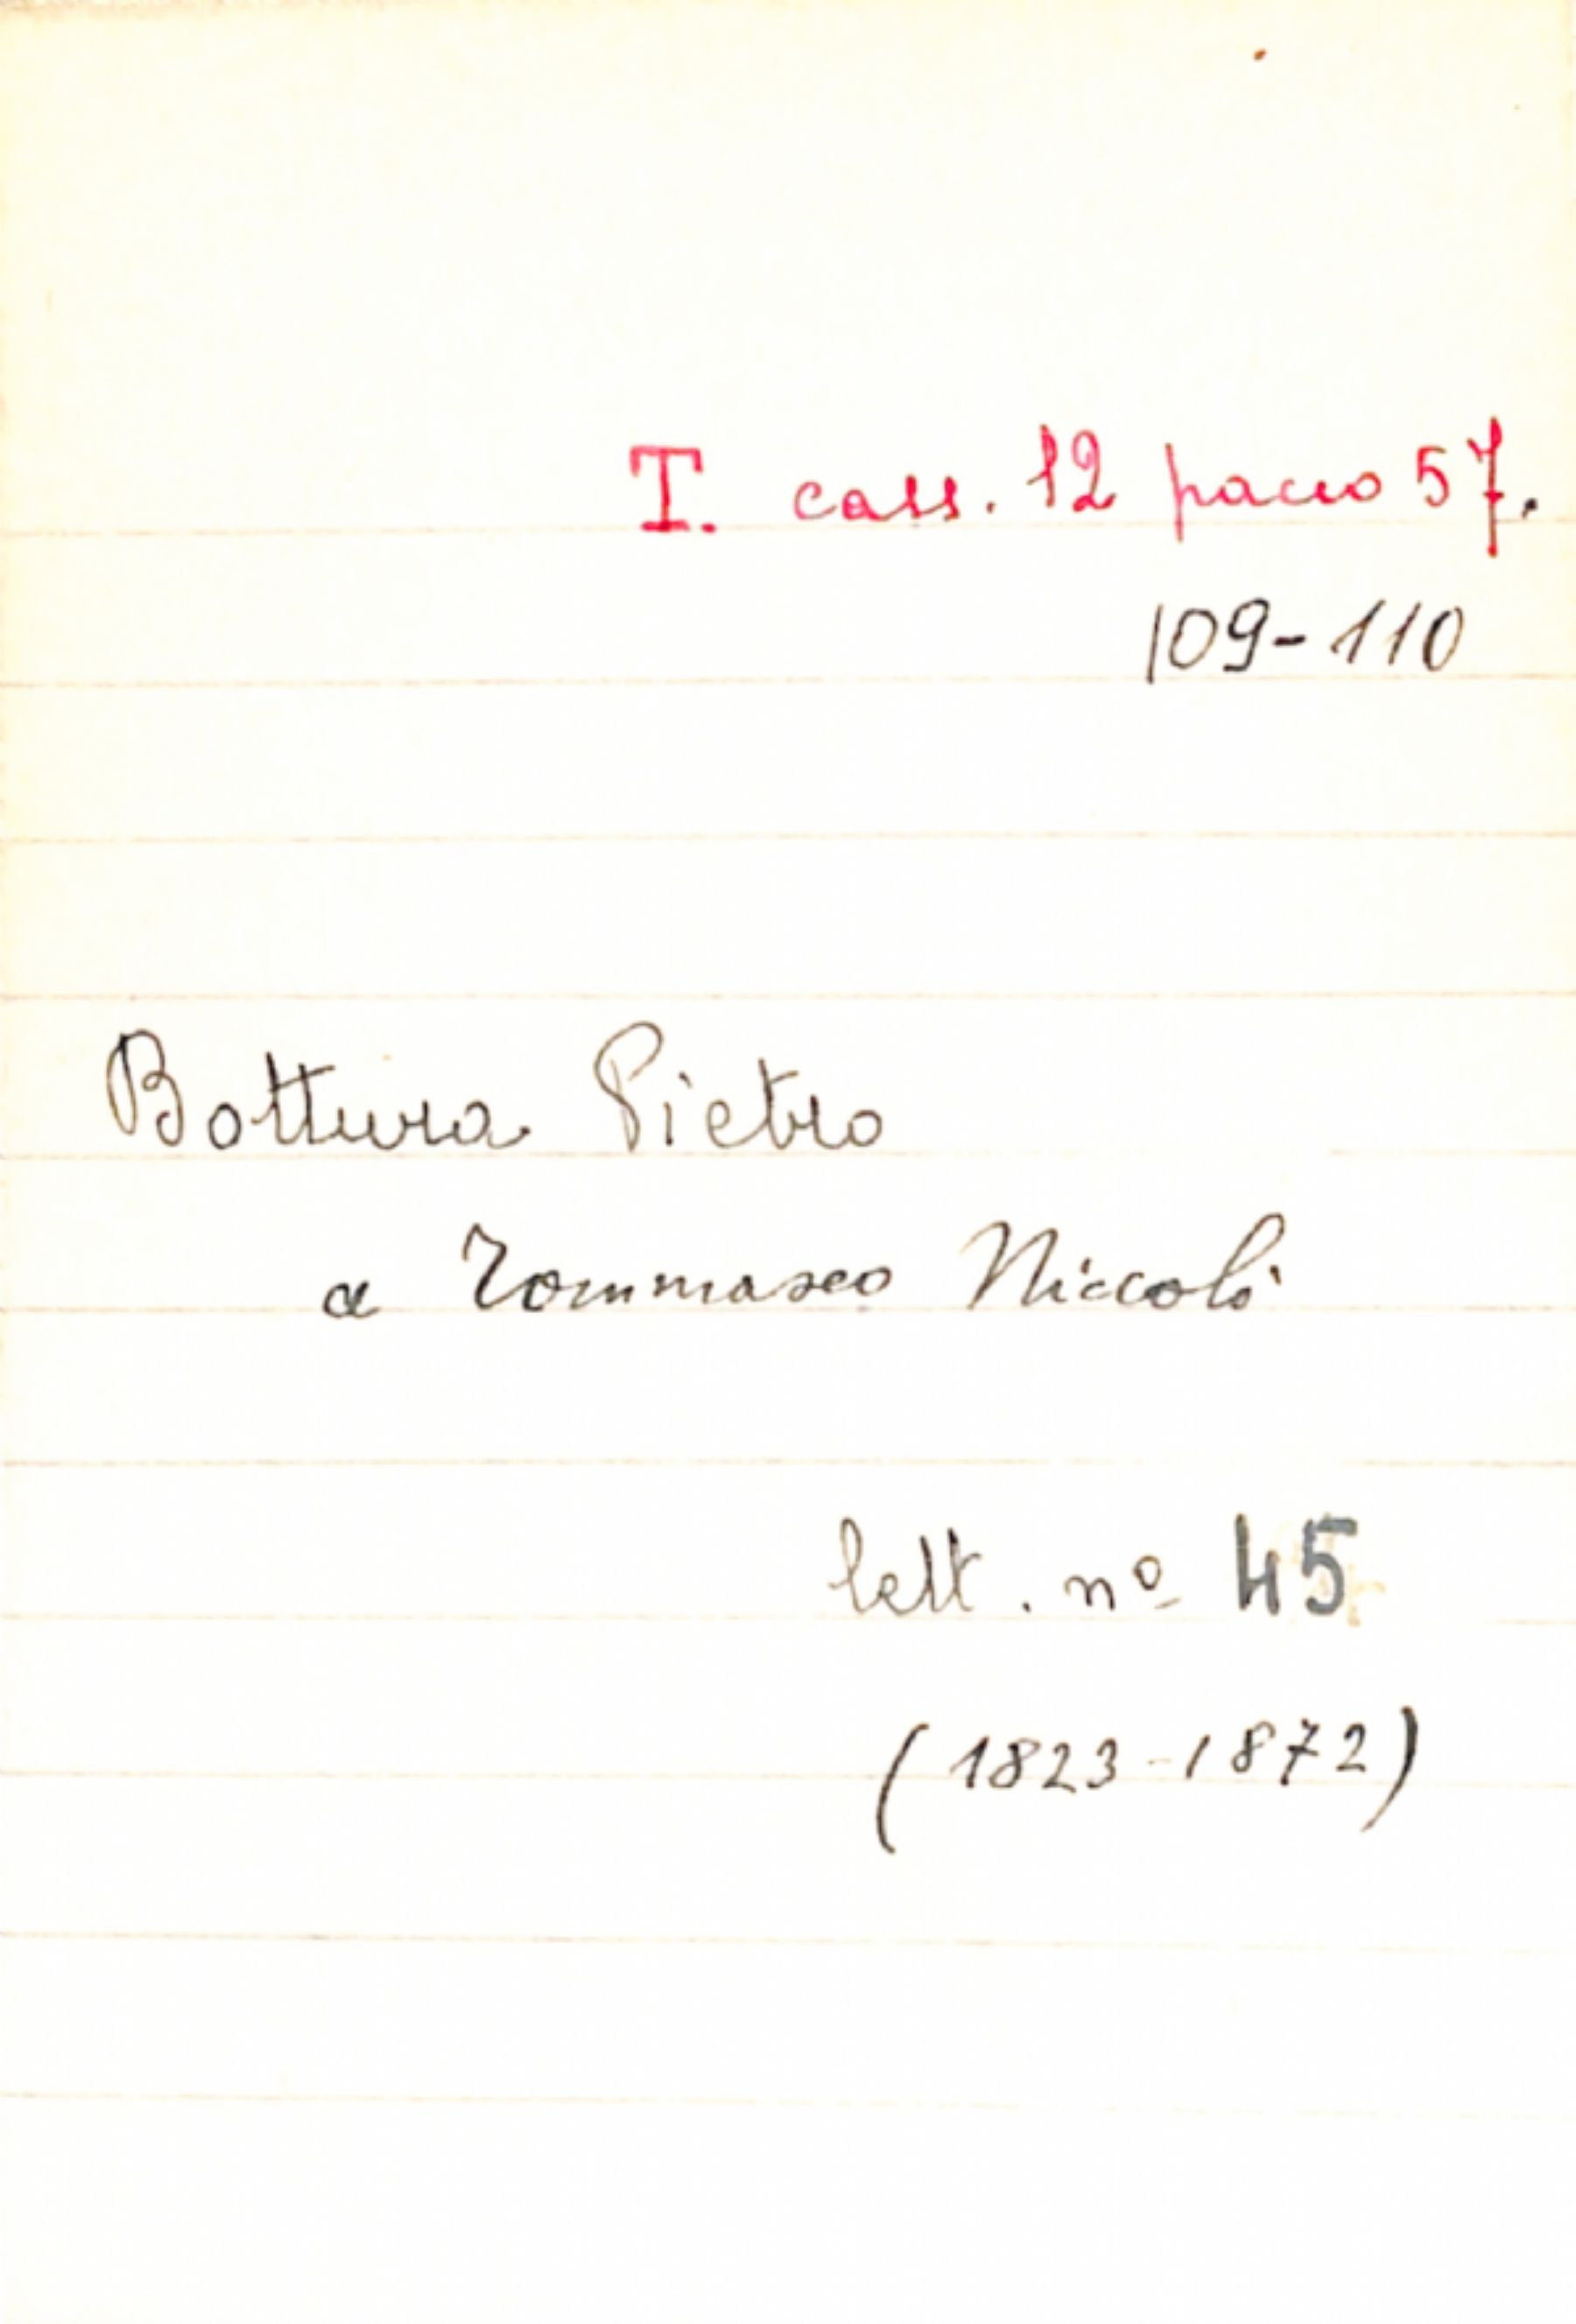 T. cass. 12 pacco 57.
109-110
Bottura Pietro
a Tommaseo Niccolò
lett. nº 45
(1823-1872)